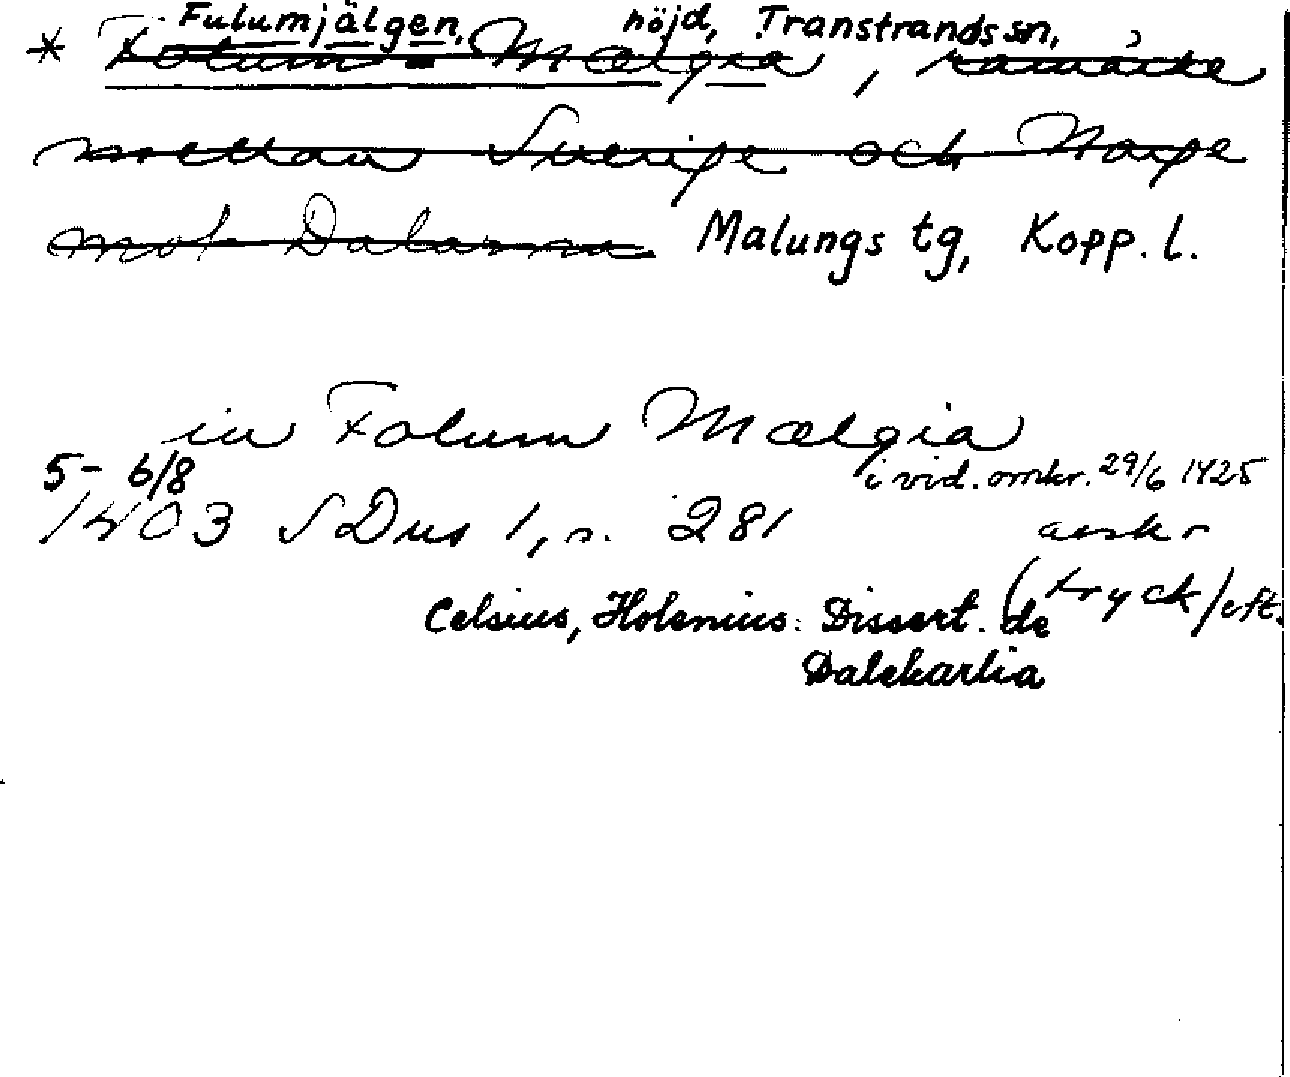 Fulumjälgen, höjd, Transtrands sn,
* Folum-Mælgia, råmärke
mellan Sverige och Norge
mot Dalarna Malungs tg, Kopp. l.
in Folum Mælgia
5-6/8 i vid. omkr. 29/6 1425
1403 SDns 1, s. 281 avskr
(tryck/eft.
Celsius, Holenius: Dissert. de
Dalekarlia